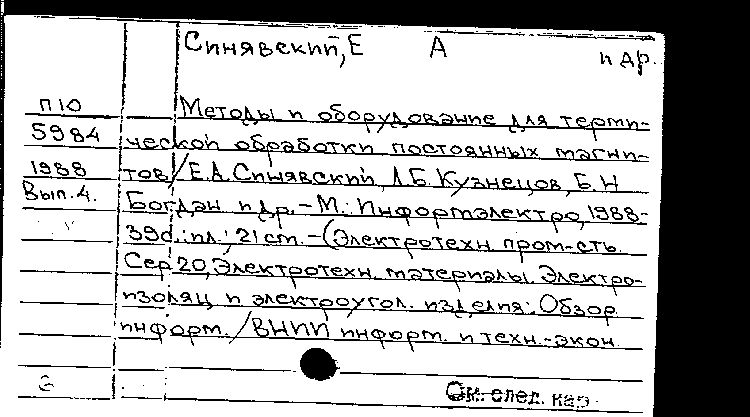 Синявский, Е А и др.
П10 Методы и оборудование для терми-
5984 ческой обработки постоянных магни-
1988 тов / Е.А. Синявский, А.Б. Кузнецов, Б.Н
Вып.4. Богдан и др. - М.: Информэлектро, 1988-
39с.: ил.; 21 см. - (Электротехн. пром-сть.
Сер 20, Электротехн. материалы. Электро-
изоляц и электроугол. изделия: Обзор
информ. / ВНИИ информ. и техн.-экон
См. след. кар.